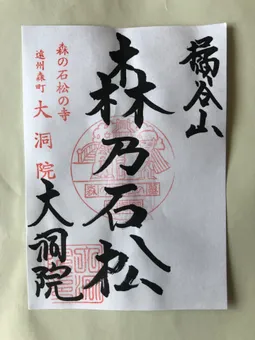 橘谷山
森乃石松
大洞院
森の石松の寺
遠州森町 大洞院